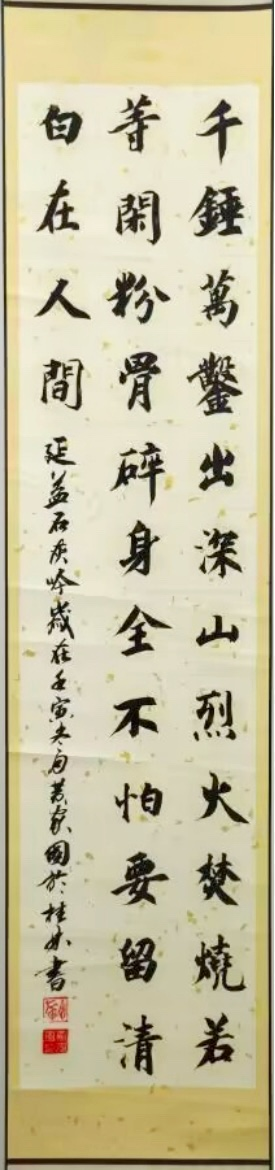 千錘萬鑿出深山烈火焚燒若
等閑粉骨碎身全不怕要留清
白在人間
延益石灰吟歲在壬寅冬月黃家國於桂林書